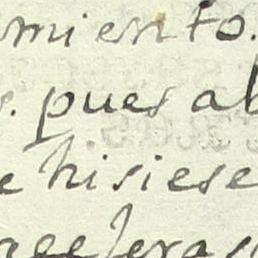 miento.
s. pues ab
e hisiese